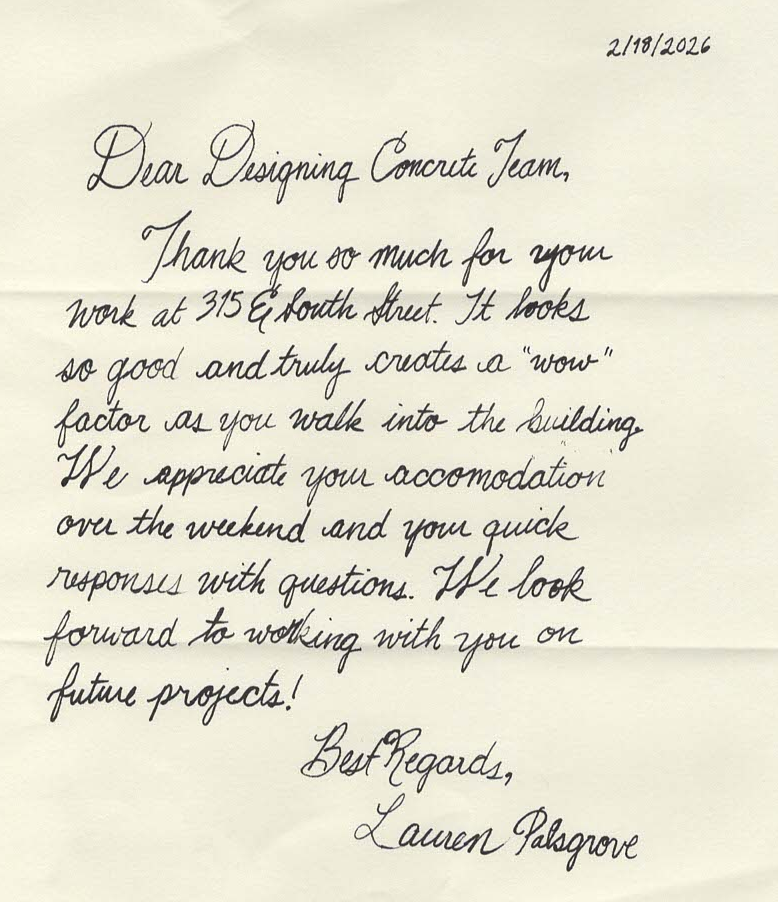 2/18/2026
Dear Designing Concrete Team,
Thank you so much for your
work at 315 E South Street. It looks
so good and truly creates a "wow"
factor as you walk into the building.
We appreciate your accomodation
over the weekend and your quick
responses with questions. We look
forward to working with you on
future projects!
Best Regards,
Lauren Palsgrove